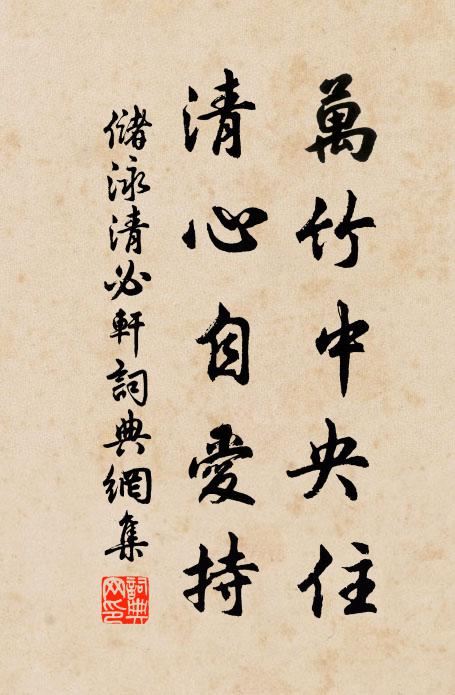 萬竹中央住
清心自愛持
儲泳清必軒詞典網集
詞典
网印